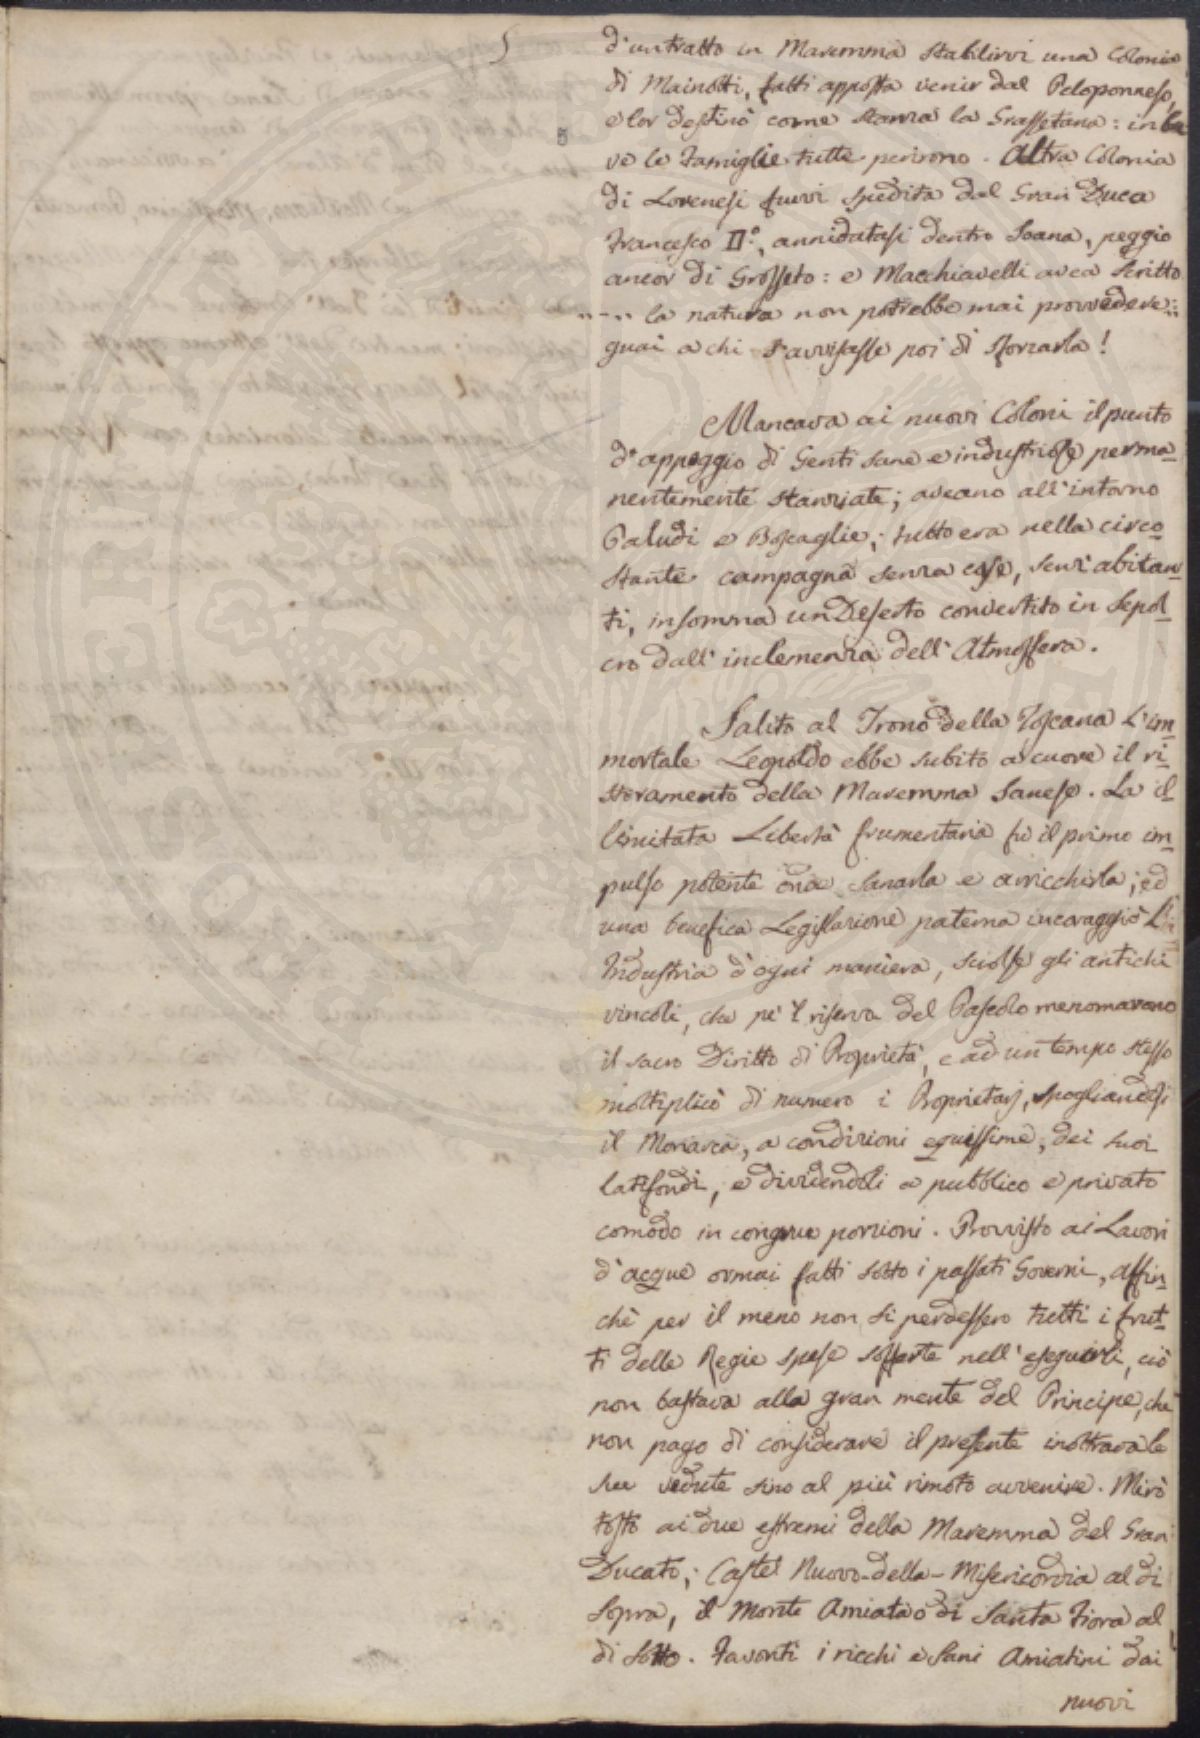 5
d'un tratto in Maremma stabilirvi una Colonia
di Mainotti, fatti apposta venir dal Peloponneso,
e lor destinò come stanza la Grossetana: in bre
ve le Famiglie tutte perirono. Altra Colonia
di Lorenesi fuvvi spedita dal Gran Duca
Francesco II.°, annidatasi dentro Soana, peggio
ancor di Grosseto: e Macchiavelli avea scritto
.... la natura non potrebbe mai provvedere:
guai a chi s'avvisasse poi di sforzarla!
Mancava ai nuovi Coloni il punto
d'appoggio di Genti sane e industriose perma-
nentemente stanziate; aveano all'intorno
Paludi e Boscaglie; tutto era nella circo-
stante campagna senza case, senz'abitan-
ti, insomma un Deserto convertito in Sepol-
cro dall'inclemenza dell'Atmosfera.
Salito al Trono della Toscana l'im-
mortale Leopoldo ebbe subito a cuore il ri-
storamento della Maremma Sanese. La il-
limitata Libertà frumentaria fù il primo im-
pulso potente onde sanarla e arricchirla; ed
una benefica Legislazione paterna incoraggiò l'
Industria d'ogni maniera, sciolse gli antichi
vincoli, che pe'l riserva del Pascolo menomavano
il sacro Diritto di Proprietà, e ad un tempo stesso
moltiplicò di numero i Proprietarj, spogliandosi
il Monarca, a condizioni equissime, dei suoi
latifondi, e dividendoli a pubblico e privato
comodo in congrue porzioni. Provvisto ai Lavori
d'acque ormai fatti sotto i passati Governi, affin-
chè per il meno non si perdessero tutti i frut-
ti delle Regie spese sofferte nell'eseguirli, ciò
non bastava alla gran mente del Principe, che
non pago di considerare il presente inoltrava le
sue vedute sino al più rimoto avvenire. Mirò
tosto ai due estremi della Maremma del Gran
Ducato; Castel Nuovo-della-Misericordia al di
sopra, il Monte Amiata o di Santa Fiora al
di sotto. Favoriti i ricchi e sani Amiatini dai
nuovi